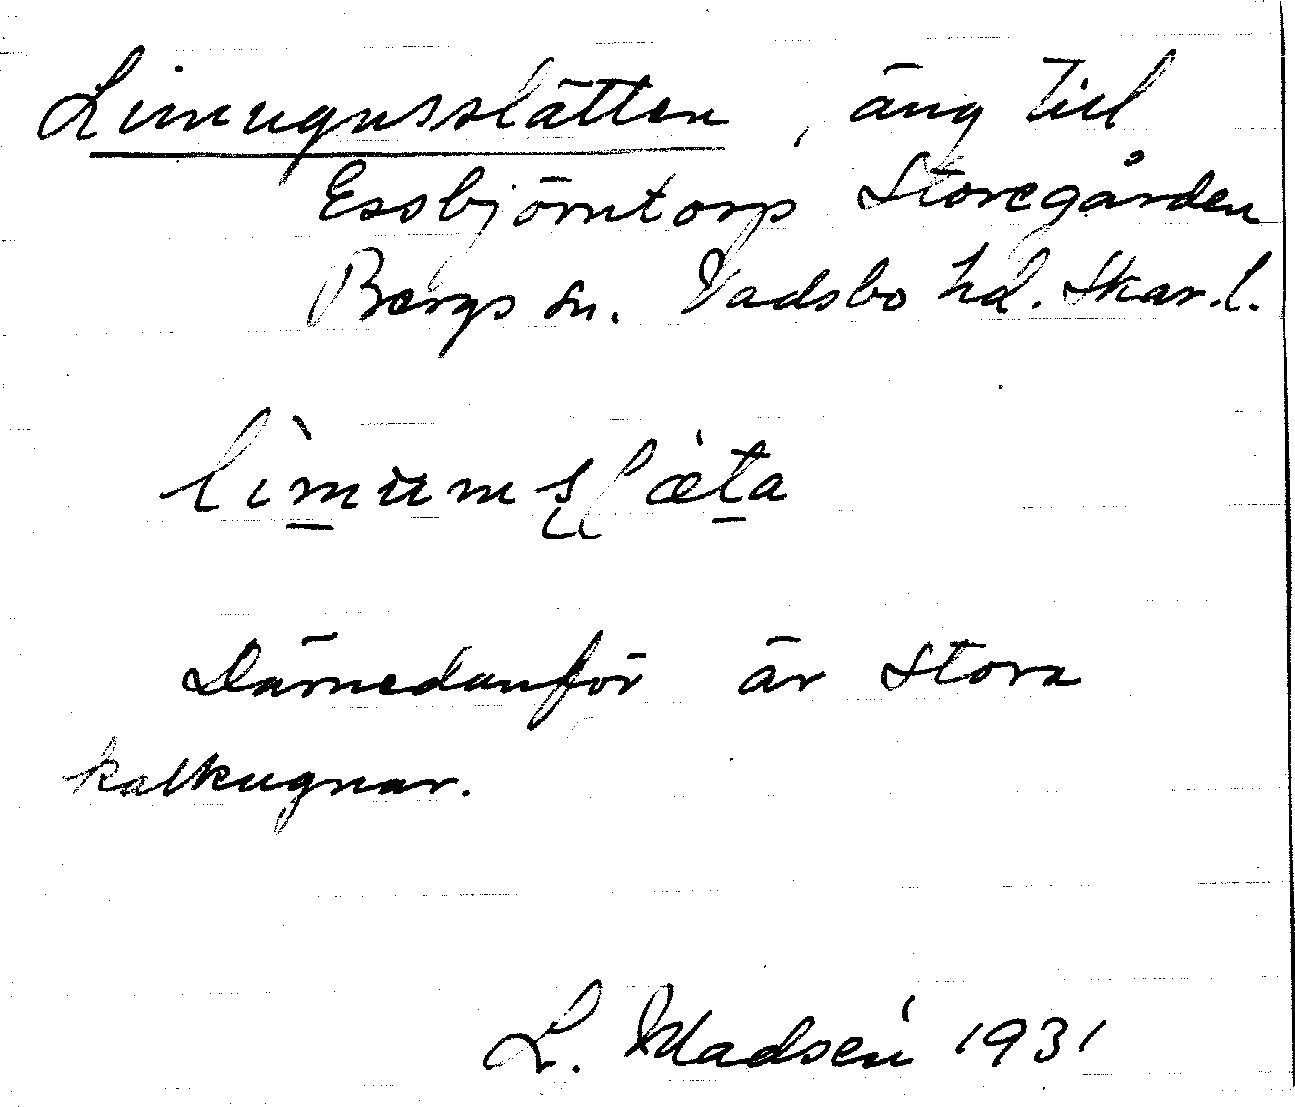 Limugnsslätten, äng till
Essbjörntorp Storegården
Bergs sn. Vadsbo hd. Skar.l.
lìmumslæ̀ta
Därnedanför är stora
kalkugnar.
L. Madsén 1931